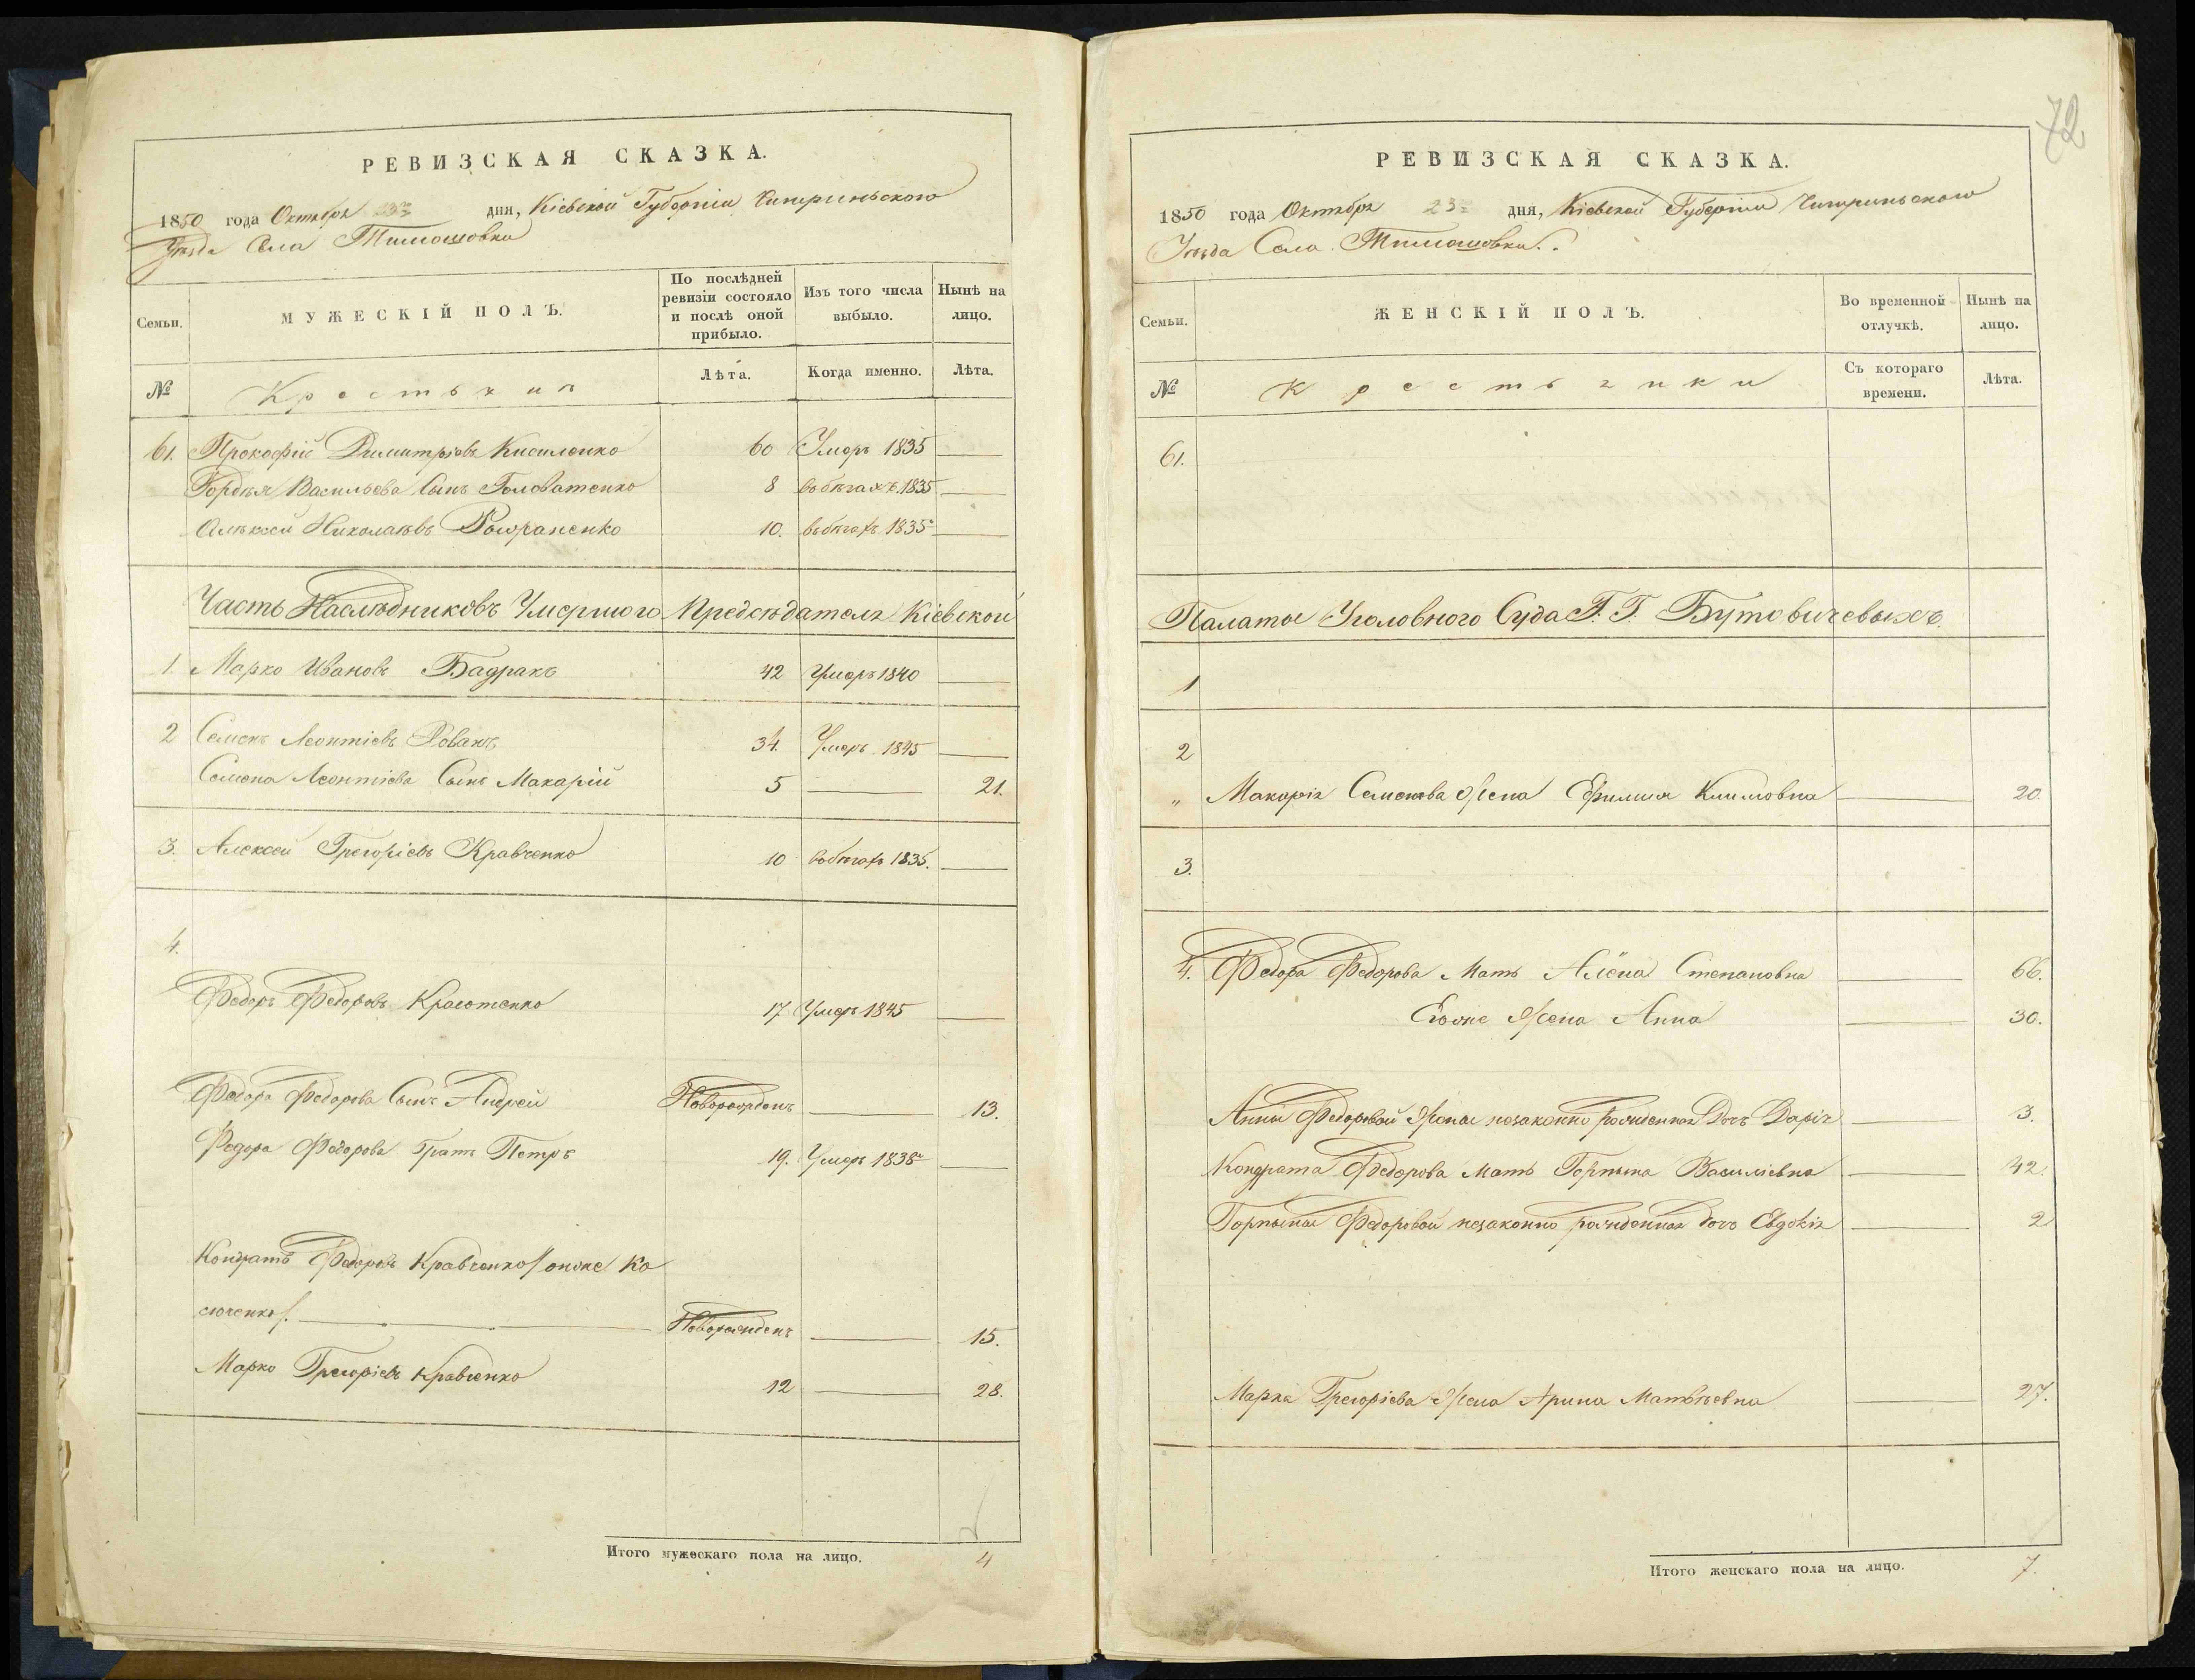 РЕВИЗСКАЯ СКАЗКА.
1850 года Октября 23го дня, Кіевской Губерніи Чигириньского
Уѣзда Села Тимошовки
Семьи.
МУЖЕСКІЙ ПОЛЪ.
По послѣдней ревизіи состояло и послѣ оной прибыло.
Изъ того числа выбыло.
Нынѣ на лицо.
№
Крестьянъ
Лѣта.
Когда именно.
Лѣта.
61. Прокофій Димитріевъ Кисиленко 60 Умеръ 1835
Гордѣя Васильева Сынъ Головатенко 8 въ бѣгахъ 1835
Алѣксей Николаѣвъ 10. въ бѣгахъ 1835го
Часть Наслѣдниковъ Умершого Предсѣдателя Кіевской
1. Марко Ивановъ Бадракъ 42 Умеръ 1840
2 Семенъ Леонтіевъ Рованъ 34. Умеръ 1845
Семена Леонтіева Сынъ Макарій 5 21.
3. Алексей Грегоріевъ Кравченко 10 въ бѣгахъ 1835.
4.
Федоръ Федоровъ Красотенко 17 Умеръ 1845
Федора Федорова Сынъ Андрей Новорожденъ 13.
Федора Федорова Братъ Петръ 19. Умеръ 1838го
Кондратъ Федоровъ Кравченко /онже Ко
сюченко/. Новорожденъ 15.
Марко Грегоріевъ Кравченко 12 28.
Итого мужескаго пола на лицо. 4
72
РЕВИЗСКАЯ СКАЗКА.
1850 года Октября 23го дня, Кіевской Губерніи Чигириньского
Уѣзда Села Тимошовки.
Семьи.
ЖЕНСКІЙ ПОЛЪ.
Во временной отлучкѣ.
Нынѣ на лицо.
№
Крестьянки
Съ котораго времени.
Лѣта.
61.
Палаты Уголовного Суда Г. Г. Бутовичевыхъ.
1
2
" Макарія Семенова Жена Ефимия Климовна 20.
3.
4. Федора Федорова Мать Алёна Степановна 66.
Егоже Жена Анна 30.
Анны Федоровой Жены незаконно рожденная Дочь Дарія 3.
Кондрата Федорова Мать Горпына Василіевна 42.
Горпыны Федоровой незаконно рожденная дочь Евдокія 2
Марка Грегоріева Жена Арина Матвѣевна 27.
Итого женскаго пола на лицо. 7.